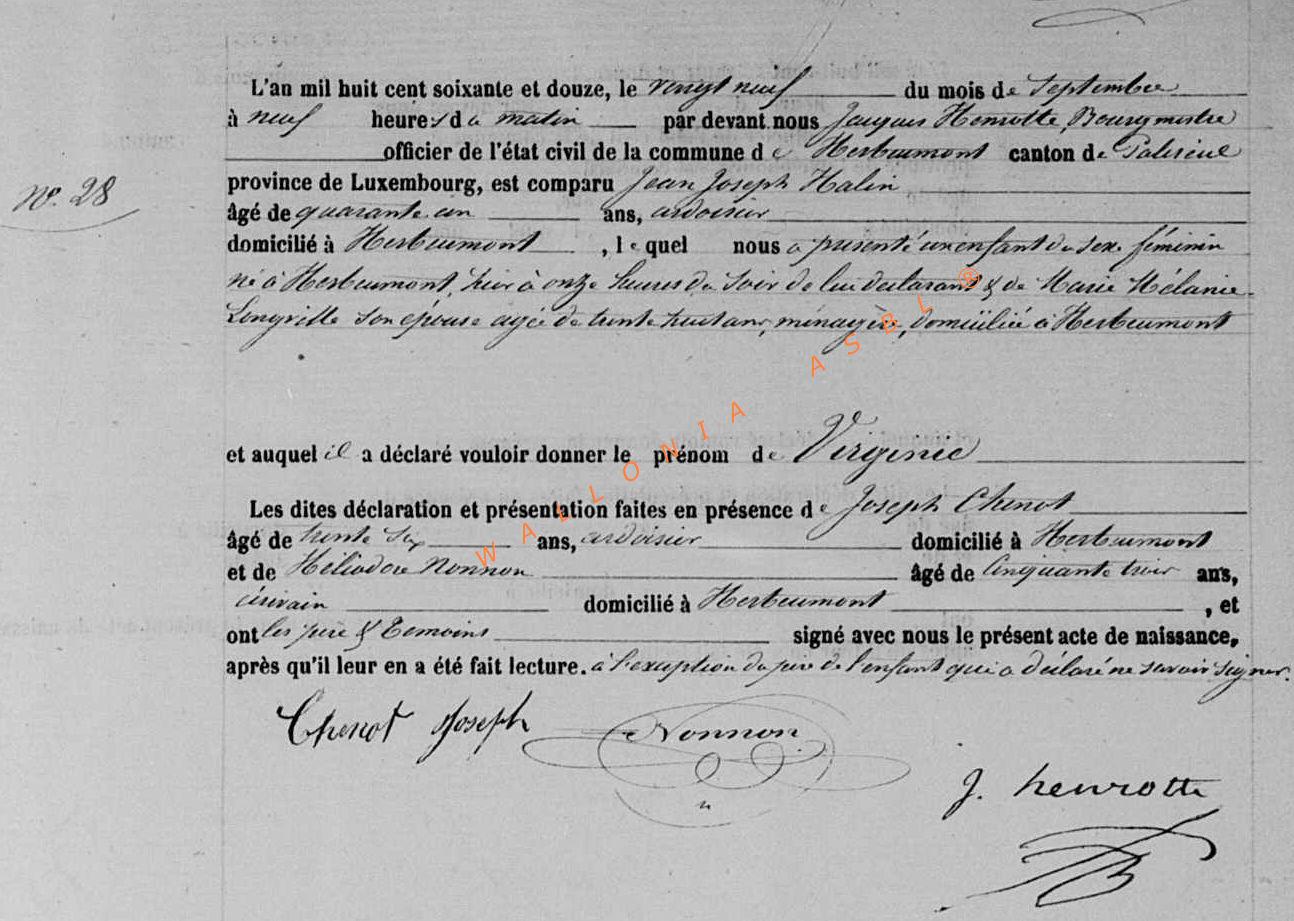 L'an mil huit cent soixante et douze, le vingt neuf du mois de Septembre
à neuf heures du matin par devant nous Jacques Henrotte, Bourgmestre
officier de l'état civil de la commune de Herbeumont canton de Paliseul
No. 28
province de Luxembourg, est comparu Jean Joseph Halin
âgé de quarante un ans, ardoisier
domicilié à Herbeumont, lequel nous a présenté un enfant du sexe féminin
né à Herbeumont, hier à onze heures du soir de lui déclarant & de Marie Mélanie
Longville son épouse agée de trente huit ans, ménagère, domiciliée à Herbeumont
et auquel il a déclaré vouloir donner le prénom de Virginie
Les dites déclaration et présentation faites en présence de Joseph Chenot
âgé de trente six ans, ardoisier domicilié à Herbeumont
et de Héliodore Nonnon âgé de Cinquante trois ans,
écrivain domicilié à Herbeumont, et
ont les père & témoins signé avec nous le présent acte de naissance,
après qu'il leur en a été fait lecture. à l'exception du père de l'enfant qui a déclaré ne savoir signer.
Chenot Joseph Nonnon
J. henrotte
WALLONIA ASBL ®